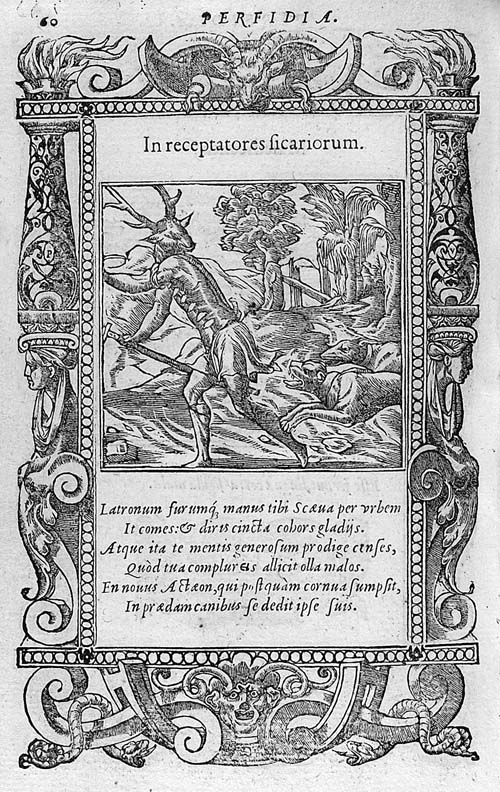 60
PERFIDIA.
In receptatores sicariorum.
Latronum furumq́; manus tibi Scæua per vrbem
It comes: & diris cincta cohors gladijs.
Atque ita te mentis generosum prodige censes,
Quòd tua complureis allicit olla malos.
En nouus Actæon, qui pòstquàm cornua sumpsit,
In prædam canibus se dedit ipse suis.